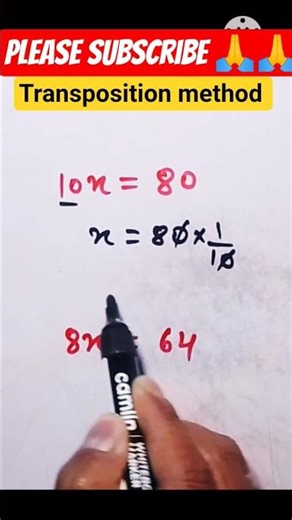 PLEASE SUBSCRIBE 🙏🙏
Transposition method
10x = 80
x = 80 × 1/10
8x = 64
camlin